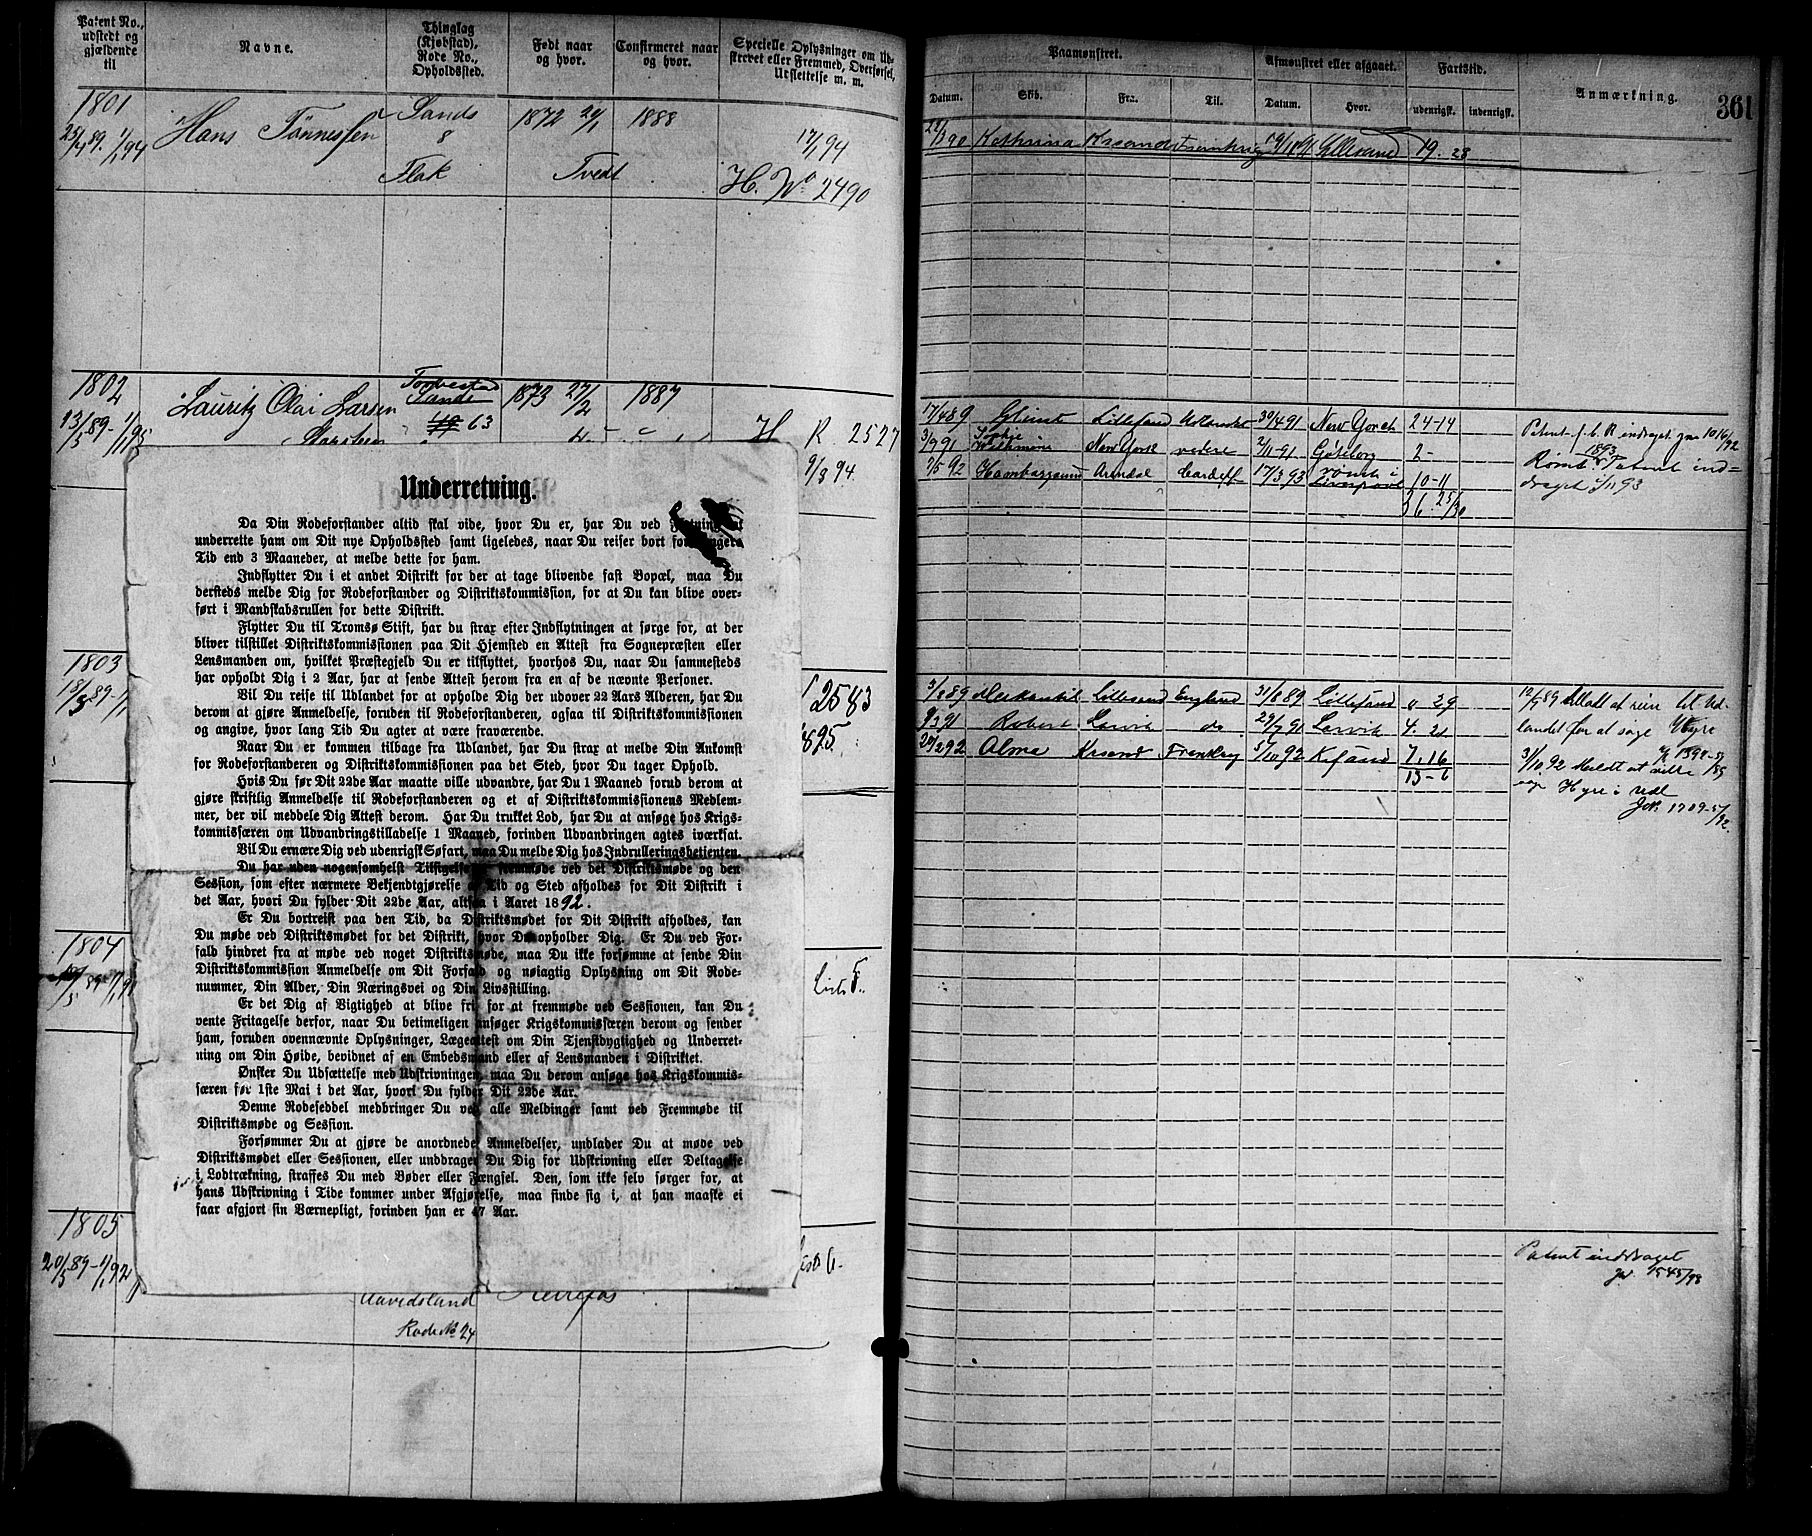 Patent No.,
udstedt og
gjældende
til
Navne.
Thinglag
(Kjøbstad),
Rode No.,
Opholdssted.
Født naar
og hvor.
Confirmeret naar
og hvor.
Specielle Oplysninger om Ud-
skrevet eller Fremmed, Overførsel,
Udslettelse m. m.
1801
25/4 89. 1/1 94
Hans Tønnessen
Sands
8
Flak
1872
Tvedt
1888
17/1 94
H. No 2490
1802
13/5 89-1/1 95
Lauritz Olai Larsen
Torbestad
Sands
63
1873 27/2
1887
H R 2527
9/3 94.
Underretning.
Da Din Rodeforstander altid skal vide, hvor Du er, har Du ved Flytning at
underrette ham om Dit nye Opholdssted samt ligeledes, naar Du reiser bort for længere
Tid end 3 Maaneder, at melde dette for ham.
Indflytter Du i et andet Distrikt for der at tage blivende fast Bopæl, maa Du
dersteds melde Dig for Rodeforstander og Distriktskommission, for at Du kan blive over-
ført i Mandskabsrullen for dette Distrikt.
Flytter Du til Tromsø Stift, har du strax efter Indflytningen at sørge for, at der
bliver tilstillet Distriktskommissionen paa Dit Hjemsted en Attest fra Sognepræsten eller
Lensmanden om, hvilket Præstegjeld Du er tilflyttet, hvorhos Du, naar Du sammesteds
har opholdt Dig i 2 Aar, har at sende Attest herom fra en af de nævnte Personer.
Vil Du reise til Udlandet for at opholde Dig der udover 22 Aars Alderen, har Du
derom at gjøre Anmeldelse, foruden til Rodeforstanderen, ogsaa til Distriktskommissionen
og angive, hvor lang Tid Du agter at være fraværende.
Naar Du er kommen tilbage fra Udlandet, har Du strax at melde Din Ankomst
for Rodeforstanderen og Distriktskommissionen paa det Sted, hvor Du tager Ophold.
Hvis Du før Dit 22de Aar maatte ville udvandre, har Du 1 Maaned forud derom at
gjøre skriftlig Anmeldelse til Rodeforstanderen og et af Distriktskommissionens Medlem-
mer, der vil meddele Dig Attest derom. Har Du trukket Lod, har Du at ansøge hos Krigs-
kommissæren om Udvandringstilladelse 1 Maaned, forinden Udvandringen agtes iværksat.
Vil Du ernære Dig ved udenrigsk Søfart, maa Du melde Dig hos Indrulleringsbetjenten.
Du har uden nogensomhelst Tilsigelse at fremmøde ved det Distriktsmøde og den
Session, som efter nærmere Bekjendtgjørelse af Tid og Sted afholdes for Dit Distrikt i
det Aar, hvori Du fylder Dit 22de Aar, altsaa i Aaret 1892.
Er Du bortreist paa den Tid, da Distriktsmødet for Dit Distrikt afholdes, kan
Du møde ved Distriktsmødet for det Distrikt, hvor Du opholder Dig. Er Du ved For-
fald hindret fra at møde ved noget Distriktsmøde, maa Du ikke forsømme at sende Din
Distriktskommission Anmeldelse om Dit Forfald og nøiagtig Oplysning om Dit Rode-
nummer, Din Alder, Din Næringsvei og Din Livsstilling.
Er det Dig af Vigtighed at blive fri for at fremmøde ved Sessionen, kan Du
vente Fritagelse derfor, naar Du betimeligen ansøger Krigskommissæren derom og sender
ham, foruden ovennævnte Oplysninger, Lægeattest om Din Tjenstdygtighed og Underret-
ning om Din Høide, bevidnet af en Embedsmand eller af Lensmanden i Distriktet.
Ønsker Du Udsættelse med Udskrivningen, maa Du derom ansøge hos Krigskommis-
særen før 1ste Mai i det Aar, hvori Du fylder Dit 22de Aar.
Denne Rodeseddel medbringer Du ved alle Meldinger samt ved Fremmøde til
Distriktsmøde og Session.
Forsømmer Du at gjøre de anordnede Anmeldelser, undlader Du at møde ved
Distriktsmødet eller Sessionen, eller unddrager Du Dig for Udskrivning eller Deltagelse
i Lodtrækning, straffes Du med Bøder eller Fængsel. Den, som ikke selv sørger for, at
hans Udskrivning i Tide kommer under Afgjørelse, maa finde sig i, at han maaske ei
faar afgjort sin Værnepligt, forinden han er 47 Aar.
1803
18/3 89-1/1
2583
1895.
1804
1805
20/5 89-1/1 92
Aavidsland
Rode No 24
361
Paamønstret.
Afmønstret eller afgaaet.
Fartstid.
Anmærkning.
Datum.
Skib.
Fra:
Til.
Datum.
Hvor.
udenrigsk.
indenrigsk.
Kathrina
Lillesand 19. 28
17/4 89 Lillesand 30/4 91 New York 24-14
3/9 91 New York 2/11-91 Gøteborg 2-
7/5 92 Arendal Cardiff 17/3 93 rømt i
Liverpool 10-11
36 25/30
Patent f. b. R inddraget 1016/92
Rømt 1893 Patent ind-
draget 93
Lillesand England 31/8 89 Lillesand 0 29
Robert Larvik do 29/7 91 Larvik 4. 21
Alma Krsand 5/10 92 7.16
13-6
89 Meldt at reise til Ud-
landet for at søge Hyre
31/10 92 Meldt at ville
søge Hyre i Udl
Jr. 1709-5/92.
Patent inddraget
Jr. 1545/93